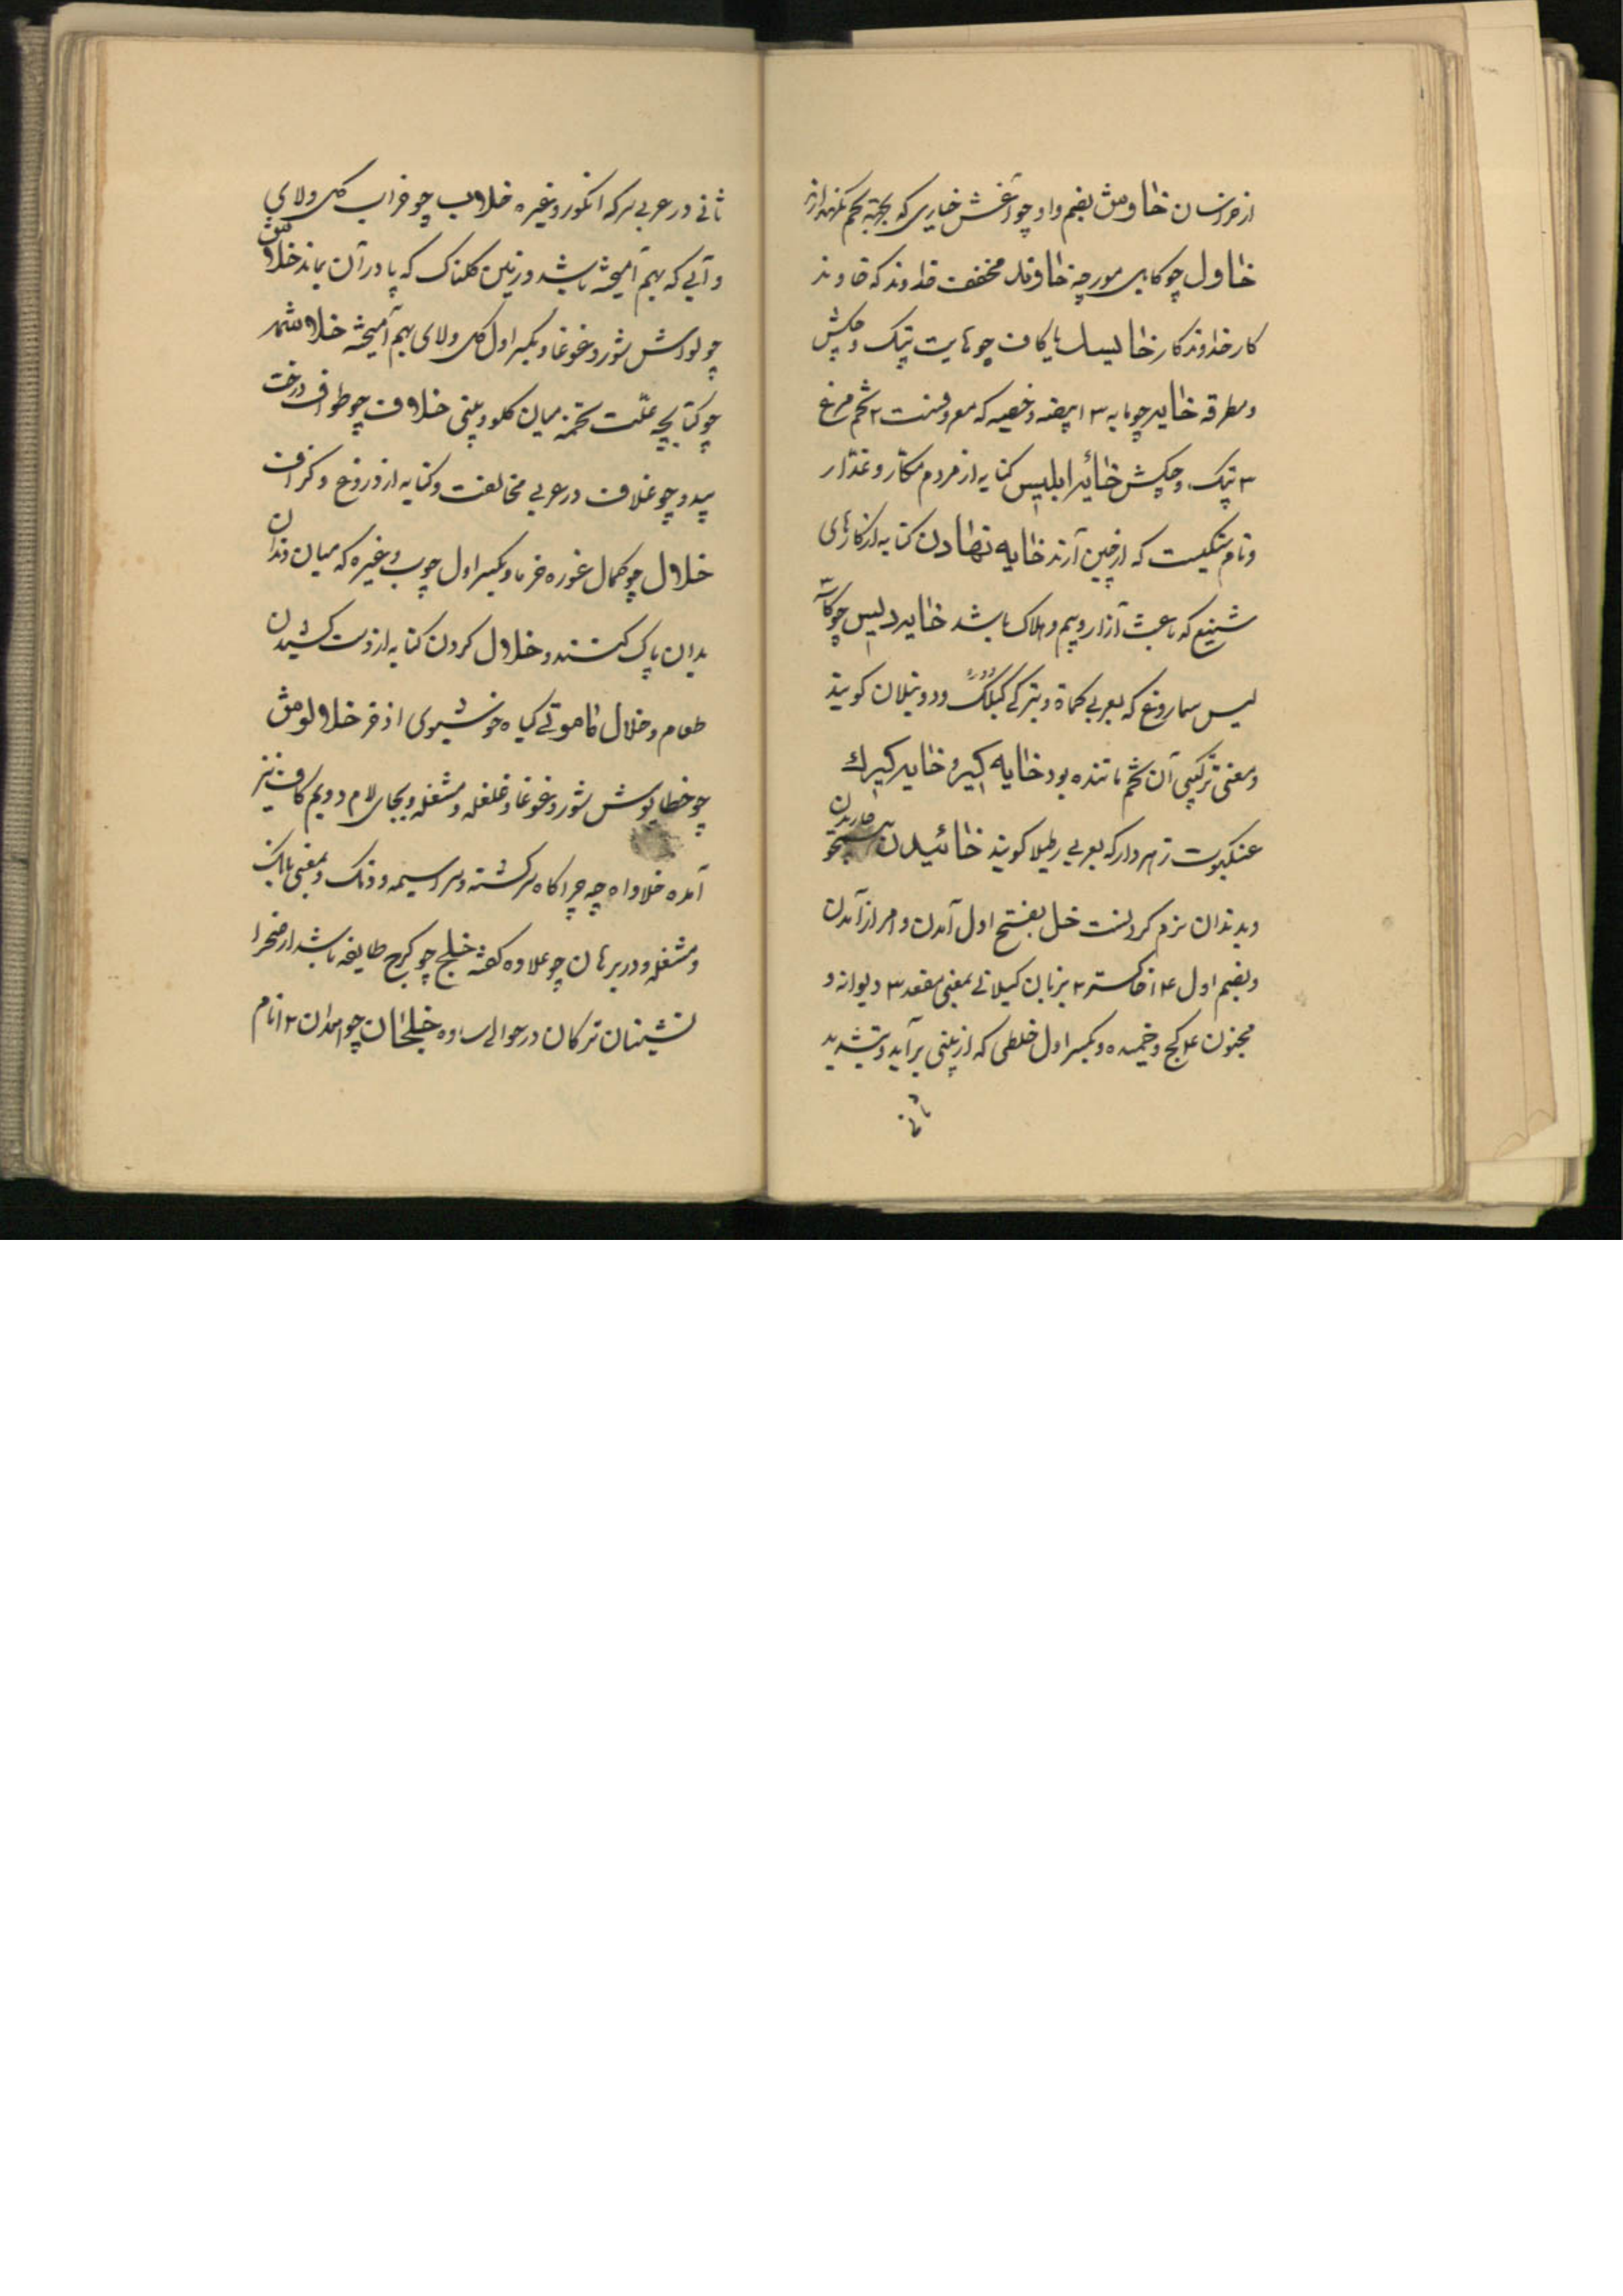 از خراسان خاوش بضم واو چو آغش خیاری که بجهة تخم نگهدارند
خاول چو کابل مورچه خاوند مخفف خداوند که خاوند
کار خداوندکار خایسک با کاف چو هایت پتک و چکش
و مطرقه خایه چو مایه ۳ ا بیضه و خصیه که معروفست ۲ تخم مرغ
۳ پتک و چکش خائه ابلیس کنایه از مردم مکار و غدار
و نام مشکیست که از چین آرند خایه نهادن کنایه از کارهای
شنیع که باعث آزار و بیم و هلاک باشد خایه دیس چو کاسه
لیس سماروغ که بعربی کماة و بترکی کبلک و دونبلان کویند
و معنی ترکیبی آن تخم مانند بود خایه کیر و خایه کیرك
عنکبوت زهردار که بعربی رطیلا کویند خائیدن خاریدن
و بدندان نرم کردنست خل بفتح اول آمدن و امر از آمدن
و بضم اول ۴ ا خاکستر ۲ بزبان کیلانی بمعنی مقعد ۳ دیوانه و
مجنون ۴ کج و خمیده و بکسر اول خلطی که از بینی برآید و بتشدید
ثانی
ثانی در عربی سرکه انکور و غیره خلاب چو خراب کل و لای
و آبی که بهم آمیخته باشد و زمین کلناک که پا در آن بماند خلاش
چو لواش شور و غوغا و بکسر اول کل و لای بهم آمیخته خلاشمه
چو کتابچه علت تخمه میان کلو و بینی خلاف چو طواف درخت
بید و چو غلاف در عربی مخالفت و کنایه از دروغ و کزاف
خلال چو کمال غوره خرما و بکسر اول چوب و غیره که میان دندان
بدان پاک کنند و خلال کردن کنایه از دست کشیدن
طعام و خلال مامونی کیاه خوشبوی اذخر خلالوش
چو خطاپوش شور و غوغا و غلغله و مشغله و بجای لام دویم کاف نیز
آمده خلاوه چه چراکاه سرکشته و سراسیمه و دنک و بمعنی بانک
و مشغله و در برهان چو علاوه کفته خلج چو کرج طایفه باشد از صحرا
نشینان ترکان در حوالی ساوه خلجان چو همدان ۲ ا نام